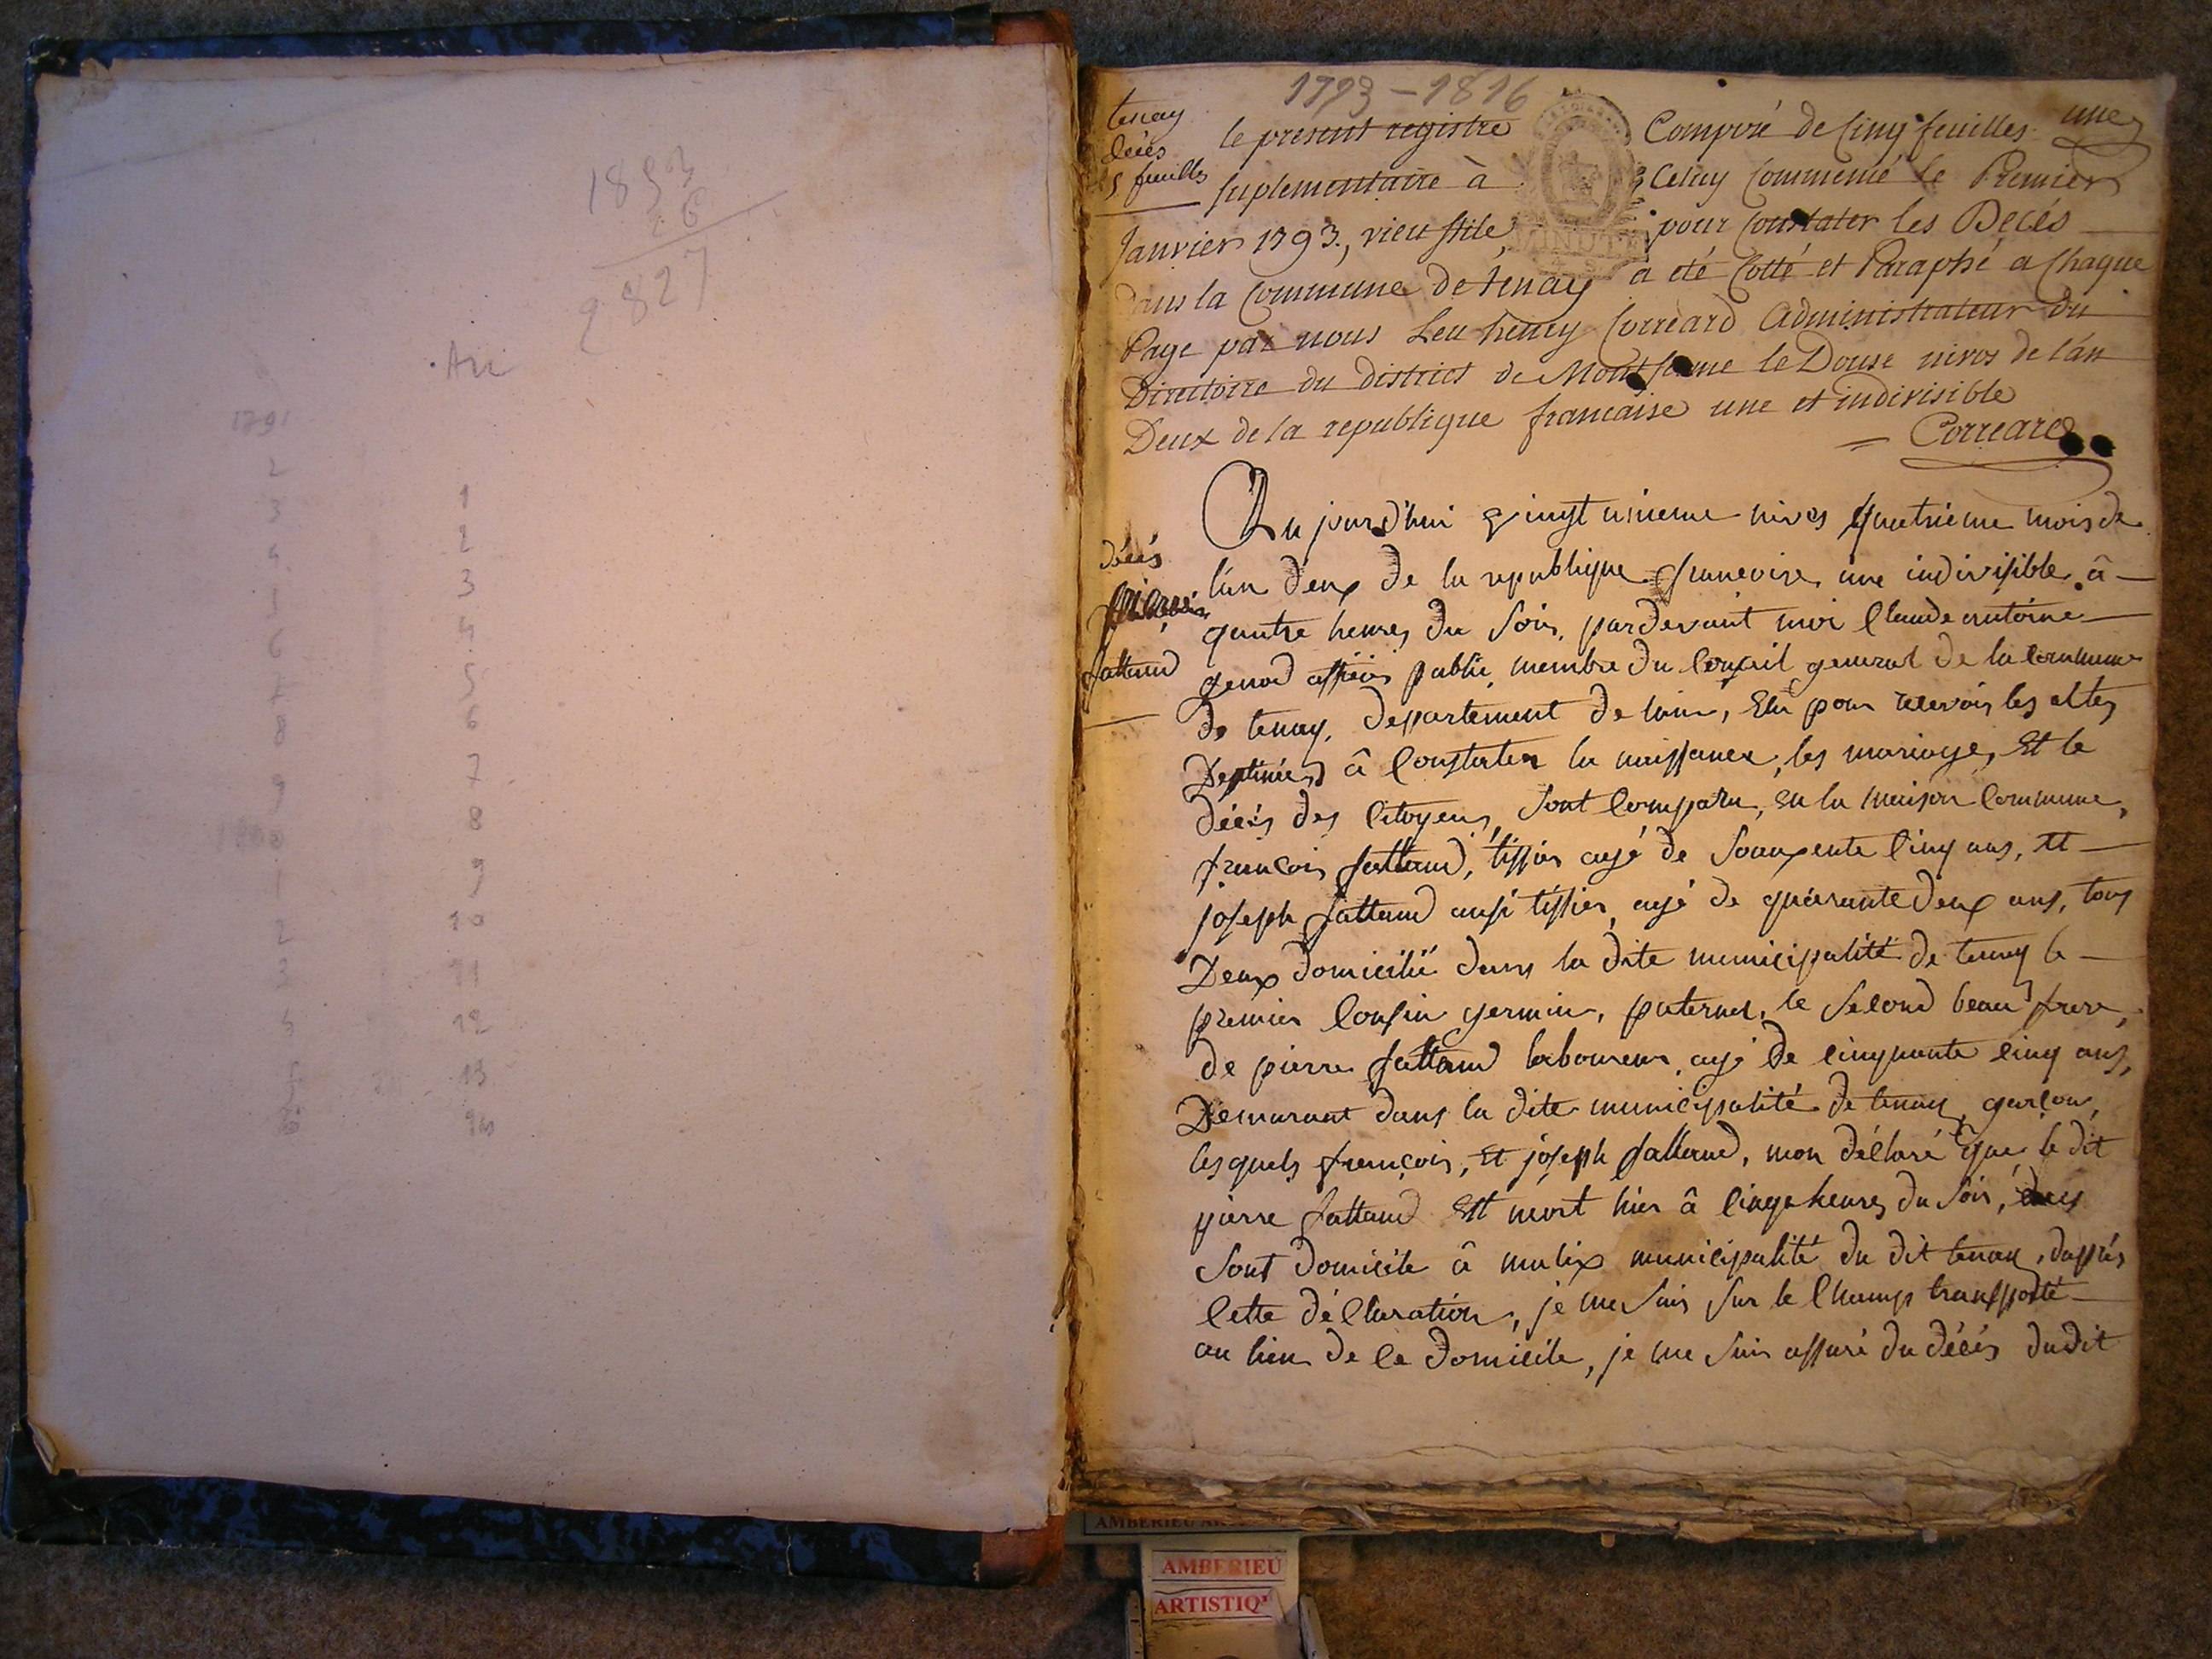 1853
26
2827
An
1791
2
3 1
4 2
5 3
6 4
7 5
8 6
9 7
8
1 9
2 10
3 11
12
13
14
1793-1816
tenay
décés
5 feuilles
une
le present registre Composé de Cinq feuilles
suplementaire à Celuy Commencé le Premier
Janvier 1793, vieu stile, pour Constater les Decés
dans la Commune de tenay a eté Cotté et Paraphé a Chaque
Page par nous Leu henry Correard Administrateur du
Directoire du district de Montferme le Douse nivos de l'an
Deux de la republique francaise une et indivisible
Correard
décés
fattaud
Au jourd'hui vingt unieme nivos quatrieme mois de
l'an deux de la republique francoise, une indivisible, â
quatre heures du soir, pardevant moi Claude antoine
genod officier public, membre du Conseil general de la Commune
de tenay, departement de lain, Elu pour recevoir les actes
Destinés â Constater la naissance, les mariage, Et le
décés des Citoyens, sont Comparu, en la maison Commune,
francois fattaud, tissier agé de soixente Cinq ans, Et
joseph fattaud ausi tissier, agé de quarante deux ans, tous
Deux domicilié dans la dite municipalité de tenay le
premier Cousin germain, paternel, le second beau frere,
de pierre fattaud laboureur, agé de cinquante cinq ans,
Demurant dans la dite municipalité de tenay, garçon,
lesquels françois, Et joseph fattaud, mon déClaré que le dit
pierre fattaud Est mort hier â Cinq heures du soir,
sont domicile â malix municipalité du dit tenay, dapprés
Cette déClaration, je me suis sur le Champ transporté
au lieu de Ce domicile, je me suis assuré du décés dudit
AMBERIEU
AMBERIEU
ARTISTIQ